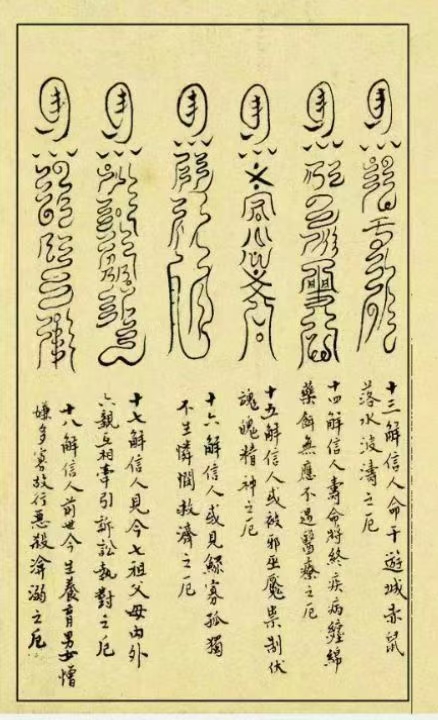 十三解信人命干遊城赤鼠
落水波濤之厄
十四解信人壽命將終疾病纏綿
藥餌無應不遇醫療之厄
十五解信人或被邪巫魘祟制伏
魂魄精神之厄
十六解信人或見鰥寡孤獨
不生憐憫救濟之厄
十七解信人見今七祖父母內外
六親互相牽引訴訟執對之厄
十八解信人前世今生養育男女憎
嫌多寡故行惡殺淹溺之厄